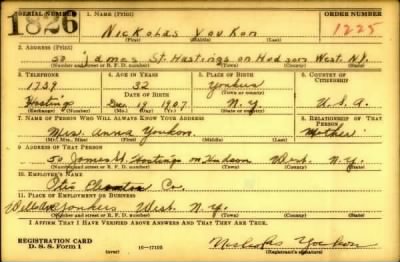 SERIAL NUMBER 1. NAME (Print) ORDER NUMBER
1826 Nickolas Youkon 1225
(First) (Middle) (Last)
2. ADDRESS (Print)
50 James St. Hastings on Hudson West. N.Y.
(Number and street or R. F. D. number) (Town) (County) (State)
3. TELEPHONE 4. AGE IN YEARS 5. PLACE OF BIRTH 6. COUNTRY OF CITIZENSHIP
1739 32 Yonkers
DATE OF BIRTH (Town or county)
Hastings Dec 19 1907 N.Y. U.S.A.
(Exchange) (Number) (Mo.) (Day) (Yr.) (State or country)
7. NAME OF PERSON WHO WILL ALWAYS KNOW YOUR ADDRESS 8. RELATIONSHIP OF THAT PERSON
Mrs. Anna Youkon. Mother
(Mr., Mrs., Miss) (First) (Middle) (Last)
9. ADDRESS OF THAT PERSON
50 James St. Hastings on Hudson West. N.Y.
(Number and street or R. F. D. number) (Town) (County) (State)
10. EMPLOYER'S NAME
Otis Co.
11. PLACE OF EMPLOYMENT OR BUSINESS
Yonkers West. N.Y.
(Number and street or R. F. D. number) (Town) (County) (State)
I AFFIRM THAT I HAVE VERIFIED ABOVE ANSWERS AND THAT THEY ARE TRUE.
REGISTRATION CARD
D. S. S. Form 1 (over) 16—17105 Nicholas Youkon
(Registrant's signature)